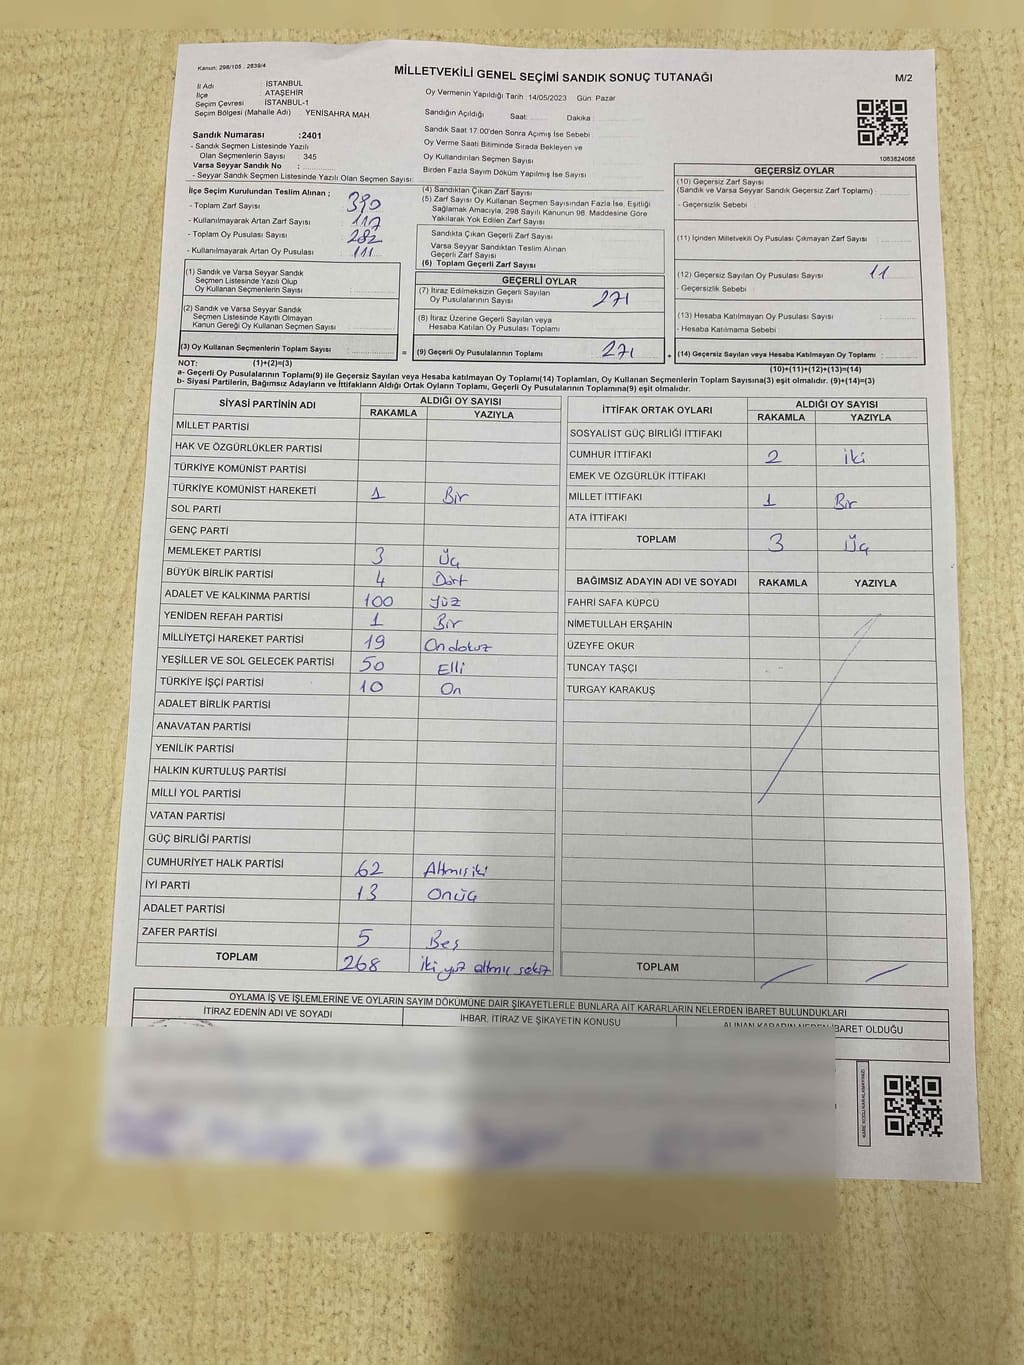 Kanun: 298/105 , 2839/4
MİLLETVEKİLİ GENEL SEÇİMİ SANDIK SONUÇ TUTANAĞI
M/2
İl Adı : İSTANBUL
İlçe : ATAŞEHİR
Seçim Çevresi : İSTANBUL-1
Seçim Bölgesi (Mahalle Adı) : YENİSAHRA MAH.
Sandık Numarası :2401
- Sandık Seçmen Listesinde Yazılı
Olan Seçmenlerin Sayısı : 345
Varsa Seyyar Sandık No :
- Seyyar Sandık Seçmen Listesinde Yazılı Olan Seçmen Sayısı:
Oy Vermenin Yapıldığı Tarih : 14/05/2023 Gün: Pazar
Sandığın Açıldığı Saat: Dakika :
Sandık Saat 17.00'den Sonra Açımış İse Sebebi
Oy Verme Saati Bitiminde Sırada Bekleyen ve
Oy Kullandırılan Seçmen Sayısı
Birden Fazla Sayım Döküm Yapılmış İse Sayısı
1083824088
İlçe Seçim Kurulundan Teslim Alınan ;
- Toplam Zarf Sayısı : 390
- Kullanılmayarak Artan Zarf Sayısı : 117
- Toplam Oy Pusulası Sayısı : 282
- Kullanılmayarak Artan Oy Pusulası : 111
(1) Sandık ve Varsa Seyyar Sandık
Seçmen Listesinde Yazılı Olup
Oy Kullanan Seçmenlerin Sayısı :
(2) Sandık ve Varsa Seyyar Sandık
Seçmen Listesinde Kayıtlı Olmayan
Kanun Gereği Oy Kullanan Seçmen Sayısı :
(3) Oy Kullanan Seçmenlerin Toplam Sayısı :
(4) Sandıktan Çıkan Zarf Sayısı
(5) Zarf Sayısı Oy Kullanan Seçmen Sayısından Fazla İse, Eşitliği
Sağlamak Amacıyla, 298 Sayılı Kanunun 98. Maddesine Göre
Yakılarak Yok Edilen Zarf Sayısı
Sandıkta Çıkan Geçerli Zarf Sayısı
Varsa Seyyar Sandıktan Teslim Alınan
Geçerli Zarf Sayısı
(6) Toplam Geçerli Zarf Sayısı
GEÇERLİ OYLAR
(7) İtiraz Edilmeksizin Geçerli Sayılan
Oy Pusulalarının Sayısı 271
(8) İtiraz Üzerine Geçerli Sayılan veya
Hesaba Katılan Oy Pusulası Toplamı
= (9) Geçerli Oy Pusulalarının Toplamı 271
GEÇERSİZ OYLAR
(10) Geçersiz Zarf Sayısı
(Sandık ve Varsa Seyyar Sandık Geçersiz Zarf Toplamı) :
- Geçersizlik Sebebi :
(11) İçinden Milletvekili Oy Pusulası Çıkmayan Zarf Sayısı :
(12) Geçersiz Sayılan Oy Pusulası Sayısı : 11
- Geçersizlik Sebebi :
(13) Hesaba Katılmayan Oy Pusulası Sayısı :
- Hesaba Katılmama Sebebi :
+ (14) Geçersiz Sayılan veya Hesaba Katılmayan Oy Toplamı :
NOT: (1)+(2)=(3)
(10)+(11)+(12)+(13)=(14)
a- Geçerli Oy Pusulalarının Toplamı(9) ile Geçersiz Sayılan veya Hesaba katılmayan Oy Toplamı(14) Toplamları, Oy Kullanan Seçmenlerin Toplam Sayısına(3) eşit olmalıdır. (9)+(14)=(3)
b- Siyasi Partilerin, Bağımsız Adayların ve İttifakların Aldığı Ortak Oyların Toplamı, Geçerli Oy Pusulalarının Toplamına(9) eşit olmalıdır.
SİYASİ PARTİNİN ADI ALDIĞI OY SAYISI
RAKAMLA YAZIYLA
MİLLET PARTİSİ
HAK VE ÖZGÜRLÜKLER PARTİSİ
TÜRKİYE KOMÜNİST PARTİSİ
TÜRKİYE KOMÜNİST HAREKETİ 1 Bir
SOL PARTİ
GENÇ PARTİ
MEMLEKET PARTİSİ 3 Üç
BÜYÜK BİRLİK PARTİSİ 4 Dört
ADALET VE KALKINMA PARTİSİ 100 Yüz
YENİDEN REFAH PARTİSİ 1 Bir
MİLLİYETÇİ HAREKET PARTİSİ 19 Ondokuz
YEŞİLLER VE SOL GELECEK PARTİSİ 50 Elli
TÜRKİYE İŞÇİ PARTİSİ 10 On
ADALET BİRLİK PARTİSİ
ANAVATAN PARTİSİ
YENİLİK PARTİSİ
HALKIN KURTULUŞ PARTİSİ
MİLLİ YOL PARTİSİ
VATAN PARTİSİ
GÜÇ BİRLİĞİ PARTİSİ
CUMHURİYET HALK PARTİSİ 62 Altmışiki
İYİ PARTİ 13 Onüç
ADALET PARTİSİ
ZAFER PARTİSİ 5 Beş
TOPLAM 268 iki yüz altmış sekiz
İTTİFAK ORTAK OYLARI ALDIĞI OY SAYISI
RAKAMLA YAZIYLA
SOSYALİST GÜÇ BİRLİĞİ İTTİFAKI
CUMHUR İTTİFAKI 2 iki
EMEK VE ÖZGÜRLÜK İTTİFAKI
MİLLET İTTİFAKI 1 Bir
ATA İTTİFAKI
TOPLAM 3 Üç
BAĞIMSIZ ADAYIN ADI VE SOYADI RAKAMLA YAZIYLA
FAHRİ SAFA KÜPCÜ
NİMETULLAH ERŞAHİN
ÜZEYFE OKUR
TUNCAY TAŞÇI
TURGAY KARAKUŞ
TOPLAM
OYLAMA İŞ VE İŞLEMLERİNE VE OYLARIN SAYIM DÖKÜMÜNE DAİR ŞİKAYETLERLE BUNLARA AİT KARARLARIN NELERDEN İBARET BULUNDUKLARI
İTİRAZ EDENİN ADI VE SOYADI İHBAR, İTİRAZ VE ŞİKAYETİN KONUSU ALINAN KARARIN NEDEN İBARET OLDUĞU